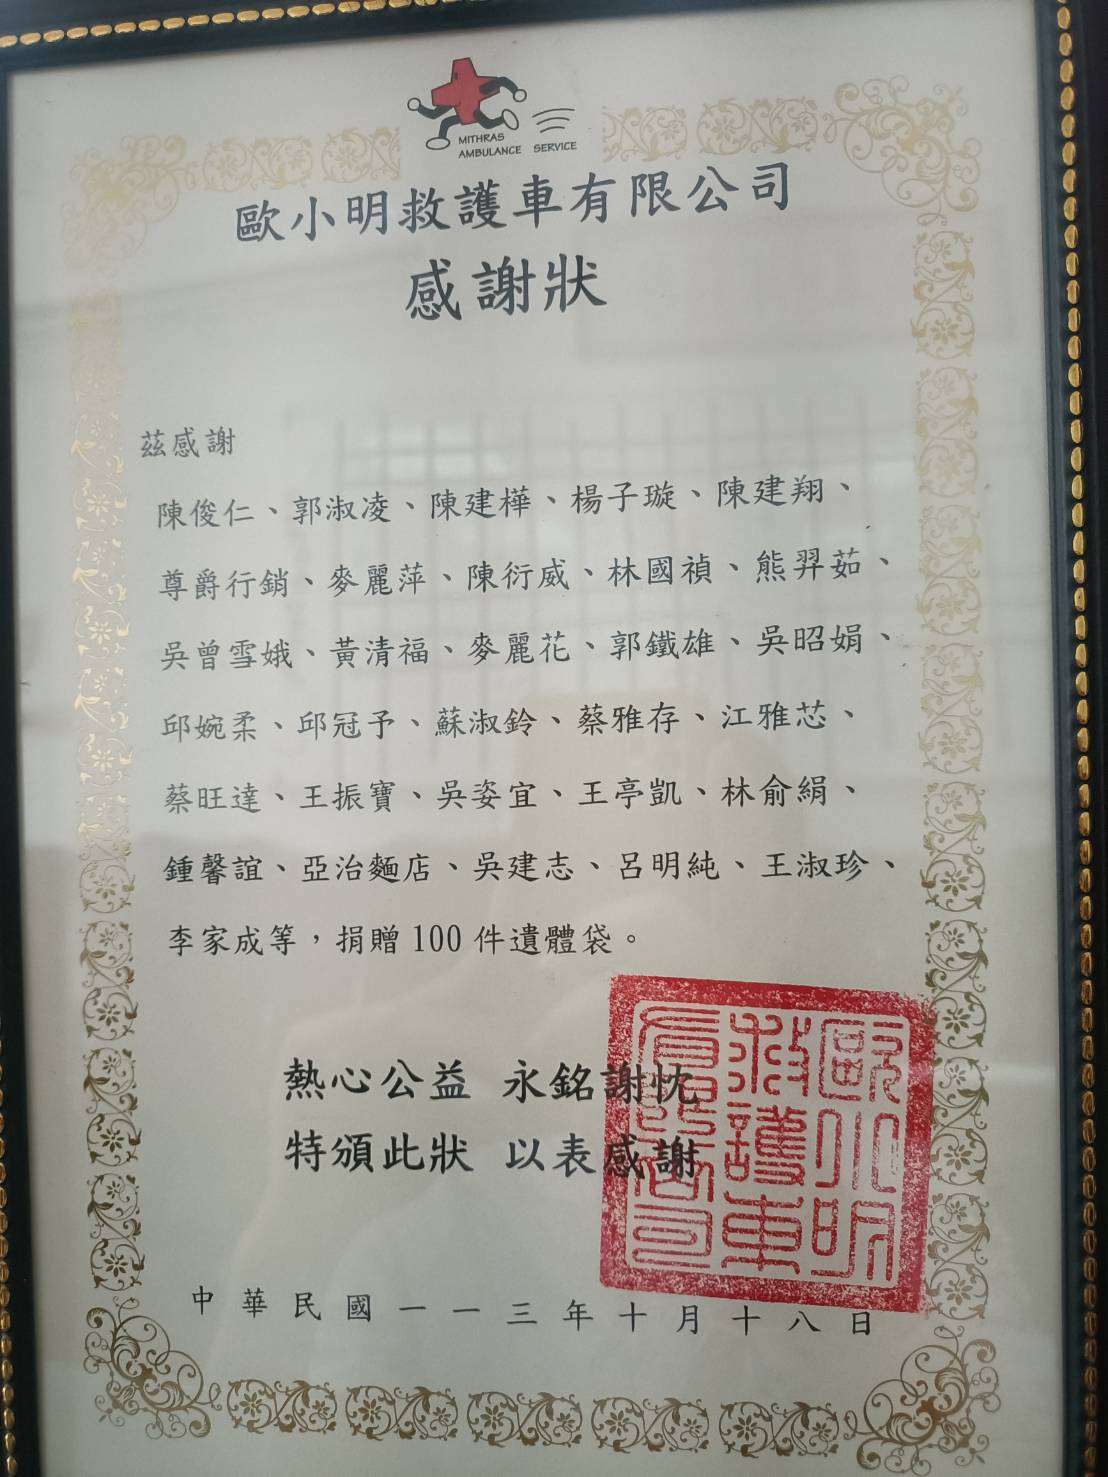 MITHRAS
AMBULANCE SERVICE
歐小明救護車有限公司
感謝狀
茲感謝
陳俊仁、郭淑凌、陳建樺、楊子璇、陳建翔、
尊爵行銷、麥麗萍、陳衍威、林國禎、熊羿茹、
吳曾雪娥、黃清福、麥麗花、郭鐵雄、吳昭娟、
邱婉柔、邱冠予、蘇淑鈴、蔡雅存、江雅芯、
蔡旺達、王振寶、吳姿宜、王亭凱、林俞絹、
鍾馨誼、亞治麵店、吳建志、呂明純、王淑珍、
李家成等，捐贈100件遺體袋。
熱心公益 永銘謝忱
特頒此狀 以表感謝
歐小明
救護車
有限公司
中華民國一一三年十月十八日